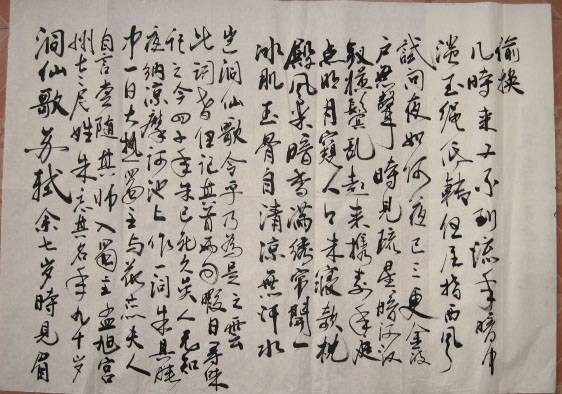 洞仙歌 苏轼 余七岁時見眉
州老尼姓朱忘其名年九十岁
自言嘗随其师入蜀主孟昶宫
中一日大热蜀主与花蕊夫人
夜纳凉摩诃池上作一词朱具能
记之今四十年朱已死久矣人无知
此词者但记其首两句暇日寻味
岂洞仙歌令乎乃為足之雲
冰肌玉骨自清凉無汗水
殿风来暗香满绣帘開一
点明月窥人人未寝欹枕
钗横鬓乱起来携素手庭
户無聲時見疏星渡河汉
試問夜如何夜已三更金波
淡玉绳低转但屈指西风
几時来又不道流年暗中
偷换